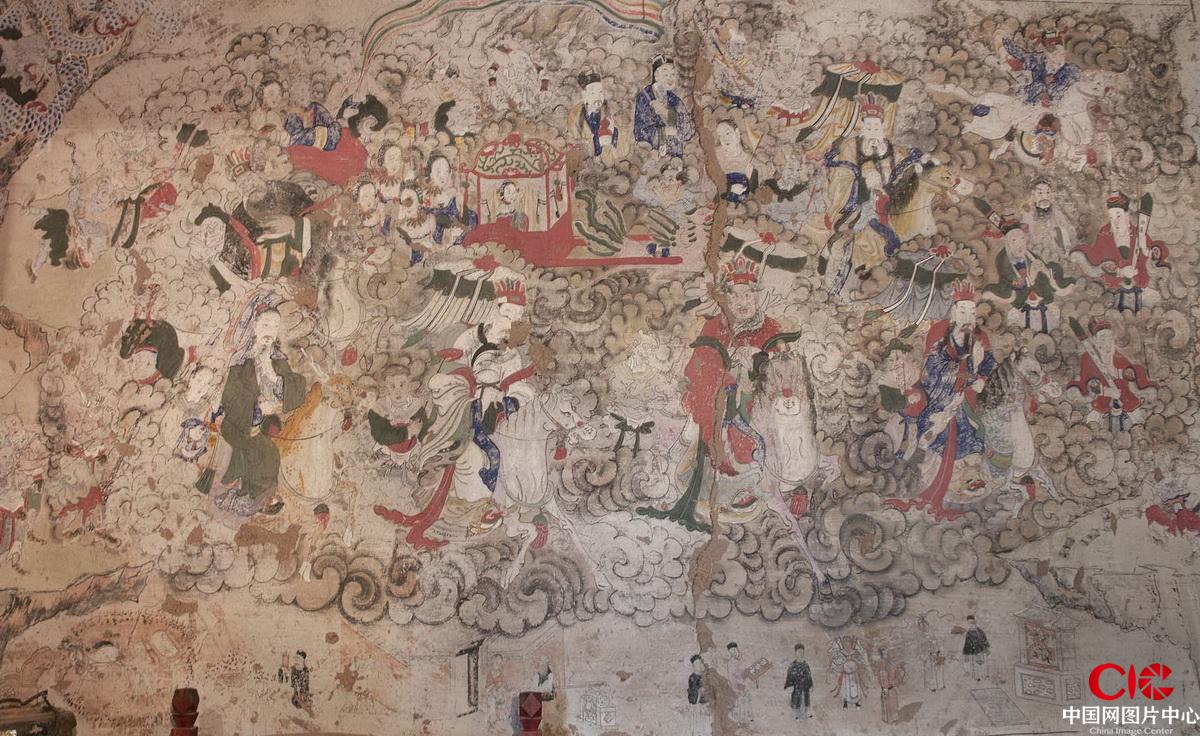 CIC
中国网图片中心
China Image Center